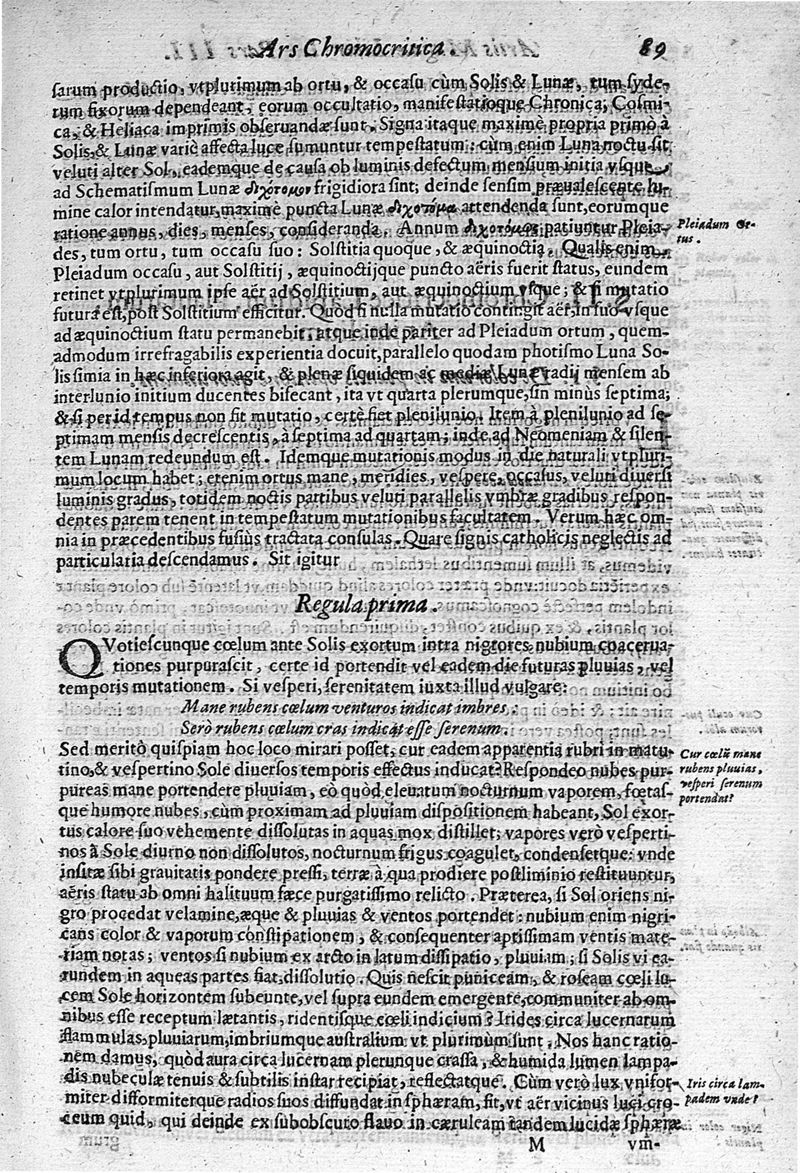 Ars Chromocritica. 89
sarum productio, vtplurimum ab ortu, & occasu cùm Solis & Lunæ, tum syde-
rum fixorum dependeant, eorum occultatio, manifestatioque Chronica, Cosmi-
ca, & Heliaca imprimis obseruandæ sunt. Signa itaque maximè propria primò à
Solis, & Lunæ variè affecta luce sumuntur tempestatum: cùm enim Luna noctu sit
veluti alter Sol, eademque de causa ob luminis defectum mensium initia vsque
ad Schematismum Lunæ διχότομον frigidiora sint; deinde sensim præualescente lu-
mine calor intendatur, maximè puncta Lunæ διχότομα attendenda sunt, eorumque
ratione annus, dies, menses, consideranda. Annum διχοτόμως patiuntur Pleia-
des, tum ortu, tum occasu suo: Solstitia quoque, & æquinoctia. Qualis enim
Pleiadum occasu, aut Solstitij, æquinoctijque puncto aëris fuerit status, eundem
retinet vtplurimum ipse aër ad Solstitium, aut æquinoctium vsque; & si mutatio
futura est, post Solstitium efficitur. Quòd si nulla mutatio contingit aër, in suo vsque
ad æquinoctium statu permanebit. atque inde pariter ad Pleiadum ortum, quem-
admodum irrefragabilis experientia docuit, parallelo quodam photismo Luna So-
lis simia in hæc inferiora agit, & plenæ siquidem ac mediæ Lunæ radij mensem ab
interlunio initium ducentes bifecant, ita vt quarta plerumque, sin minùs septima;
& si per id tempus non fit mutatio, certè fiet plenilunio. Item à plenilunio ad se-
ptimam mensis decrescentis, à septima ad quartam; inde ad Neomeniam & silen-
tem Lunam redeundum est. Idemque mutationis modus in die naturali vtpluri-
mùm locum habet; etenim ortus mane, meridies, vespere, occasus, veluti diuersi
luminis gradus, totidem noctis partibus veluti parallelis vmbræ gradibus respon-
dentes parem tenent in tempestatum mutationibus facultatem. Verum hæc om-
nia in præcedentibus fusiùs tractata consulas. Quare signis catholicis neglectis ad
particularia descendamus. Sit igitur
Pleiadum Or-
tus.
Regula prima.
QVotiescunque cœlum ante Solis exortum intra nigrores nubium coacerua-
tiones purpurascit, certe id portendit vel eadem die futuras pluuias, vel
temporis mutationem. Si vesperi, serenitatem iuxta illud vulgare:
Mane rubens cœlum venturos indicat imbres.:
Serò rubens cœlum cras indicat esse serenum.
Sed meritò quispiam hoc loco mirari posset; cur eadem apparentia rubri in matu-
tino, & vespertino Sole diuersos temporis effectus inducat? Respondeo nubes pur-
pureas mane portendere pluuiam, eò quòd eleuatum nocturnum vaporem, fœtas-
que humore nubes, cùm proximam ad pluuiam dispositionem habeant, Sol exor-
tus calore suo vehemente dissolutas in aquas mox distillet; vapores verò vesperti-
nos à Sole diurno non dissolutos, nocturnum frigus coagulet, condensetque: vnde
insitæ sibi grauitatis pondere pressi, terræ à qua prodiere postliminio restituuntur,
aëris statu ab omni halituum fæce purgatissimo relicto. Præterea, si Sol oriens ni-
gro procedat velamine, æque & pluuias & ventos portendet: nubium enim nigri-
cans color & vaporum constipationem, & consequenter aptissimam ventis mate-
riam notas; ventos si nubium ex arcto in latum dissipatio, pluuiam; si Solis vi ea-
rundem in aqueas partes fiat dissolutio. Quis nescit puniceam, & roseam cœli lu-
cem Sole horizontem subeunte, vel supra eundem emergente, communiter ab om-
nibus esse receptum lætantis, ridentisque cœli indicium? Irides circa lucernarum
flammulas, pluuiarum, imbriumque australium vt plurimùm sunt. Nos hanc ratio-
nem damus, quòd aura circa lucernam plerunque crassa, & humida lumen lampa-
dis nubeculæ tenuis & subtilis instar recipiat, reflectatque. Cùm verò lux vnifor-
miter difformiterque radios suos diffundat in sphæram, fit, vt aër vicinus luci cro-
ceum quid, qui deinde ex subobscuro flauo in cæruleam tandem lucidæ sphæræ
Cur cœlū mane
rubens pluuias,
vesperi serenum
portendat?
Iris circa lam-
padem vnde?
M vm-